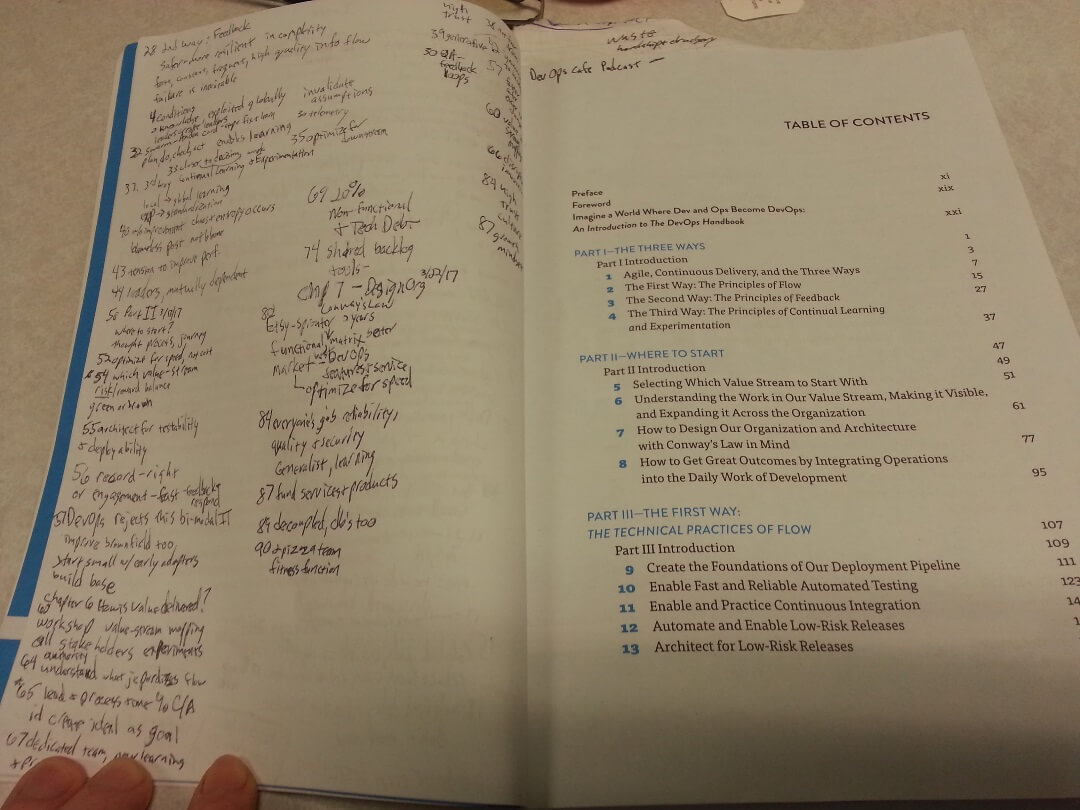 28 2nd way: Feedback
safer + more resilient in complexity
failure is inevitable
4 conditions
knowledge exploited globally
invalidate
assumptions
plan, do, check, act enables learning
30 telemetry
35 optimize for
downstream
33 closer to decisions
37. 3rd way Continual Learning & Experimentation
local → global learning
→ standardization
40 chaos + entropy occurs
blameless post not blame
43 tension to improve perf.
44 leaders, mutually dependent
50 Part II
where to start?
thought process, journey
52 optimize for speed, not cost
54 which value-stream
risk/reward balance
green or brown
55 architect for testability
+ deployability
56 record-right
or engagement-fast-feedback
respond
57 DevOps rejects this bi-modal IT
improve brownfield too,
start small w/ early adopters
build base
60 Chapter 6 How is value delivered?
workshop value-stream mapping
all stakeholders experiments
authority
64 understand what jepordizes flow
65 lead + process time % C/A
id create ideal as goal
67 dedicated team, new learning
69 20%
Non-functional
+ Tech Debt
74 shared backlog
tools-
Chp 7 - Design Org 3/22/17
Conway's Law
82
Etsy-sprouter 2 years
functional matrix better
market - DevOps
service
→ optimize for speed
84 everyone's job reliability,
quality + security
Generalist, learning
87 fund services + products
89 decoupled, db's too
90 2 pizza team
fitness function
high
trust
39 generative
30 QA-
feedback
loops
57
60
66
84 high
trust
culture
87 growth
mindset
waste
DevOps Cafe Podcast -
TABLE OF CONTENTS
Preface xi
Foreword xix
Imagine a World Where Dev and Ops Become DevOps:
An Introduction to The DevOps Handbook xxi
PART I—THE THREE WAYS 1
Part I Introduction 3
1 Agile, Continuous Delivery, and the Three Ways 7
2 The First Way: The Principles of Flow 15
3 The Second Way: The Principles of Feedback 27
4 The Third Way: The Principles of Continual Learning
and Experimentation 37
PART II—WHERE TO START 47
Part II Introduction 49
5 Selecting Which Value Stream to Start With 51
6 Understanding the Work in Our Value Stream, Making it Visible,
and Expanding it Across the Organization 61
7 How to Design Our Organization and Architecture
with Conway's Law in Mind 77
8 How to Get Great Outcomes by Integrating Operations
into the Daily Work of Development 95
PART III—THE FIRST WAY:
THE TECHNICAL PRACTICES OF FLOW 107
Part III Introduction 109
9 Create the Foundations of Our Deployment Pipeline 111
10 Enable Fast and Reliable Automated Testing 123
11 Enable and Practice Continuous Integration 14
12 Automate and Enable Low-Risk Releases 1
13 Architect for Low-Risk Releases